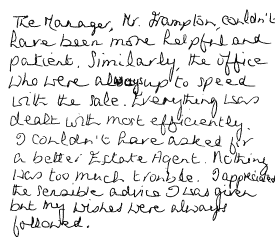 The Manager, Mr. Frampton, couldn't
have been more helpful and
patient. Similarly, the office
who were always up to speed
with the sale. Everything was
dealt with most efficiently.
I couldn't have asked for
a better Estate Agent. Nothing
was too much trouble. I appreciated
the sensible advice I was given
but my wishes were always
followed.